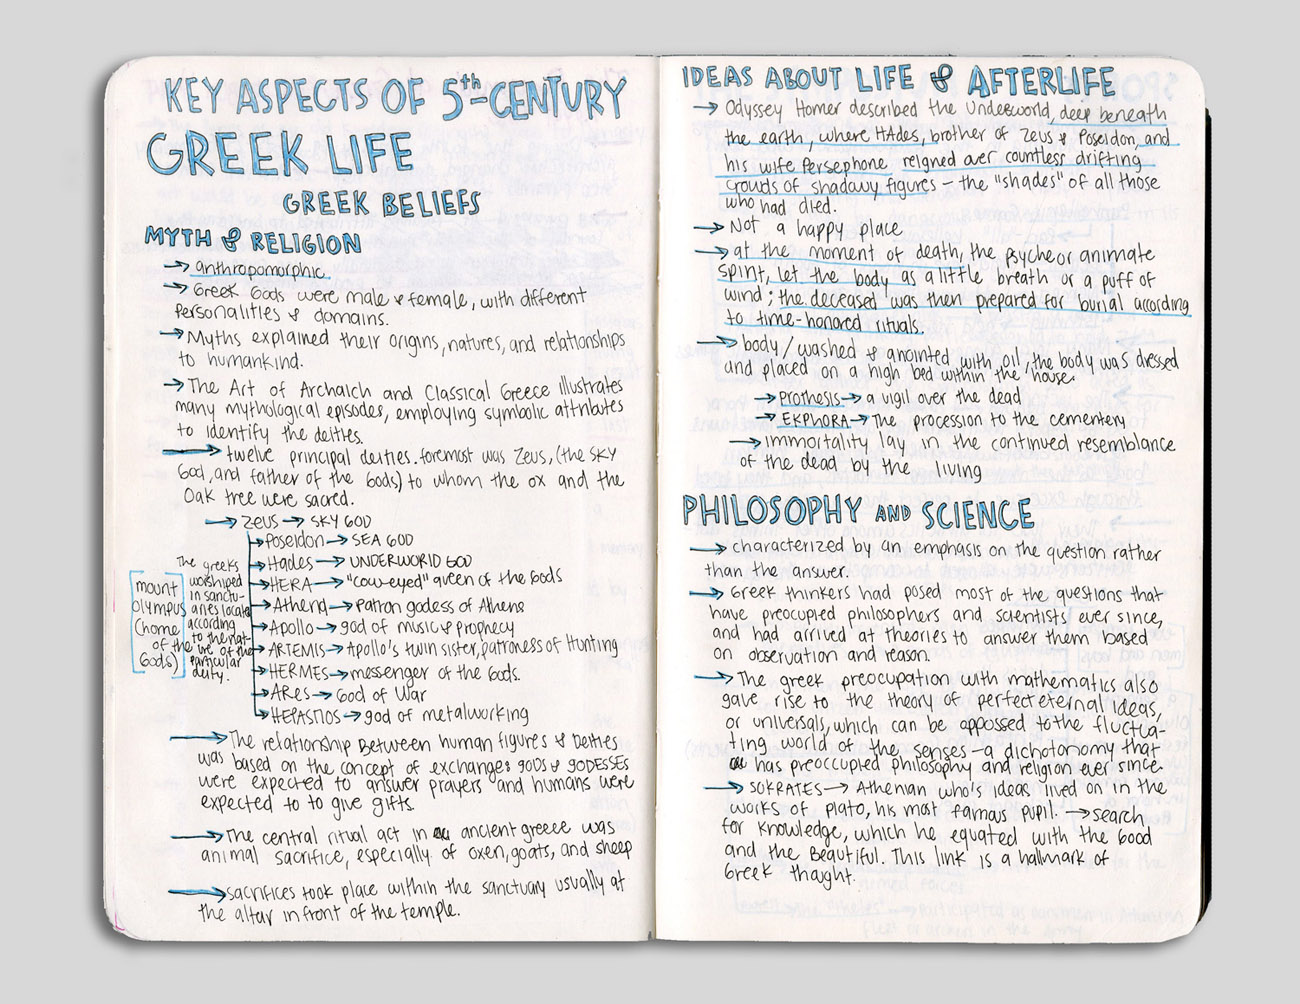 KEY ASPECTS OF 5th-CENTURY
GREEK LIFE
GREEK BELIEFS
MYTH & RELIGION
→ Anthropomorphic
→ Greek Gods were male & female, with different
personalities & domains.
→ Myths explained their origins, natures, and relationships
to humankind.
→ The Art of Archaich and Classical Greece illustrates
many mythological episodes, employing symbolic attributes
to identify the deities.
→ twelve principal deities. foremost was Zeus, (the SKY
God, and father of the Gods) to whom the ox and the
Oak tree were sacred.
→ Zeus → SKY GOD
→ Poseidon → SEA GOD
→ Hades → UNDERWORLD GOD
→ HERA → "cow-eyed" queen of the Gods
→ Athena → Patron godess of Athens
→ Apollo → god of music & prophecy
→ ARTEMIS → Apollo's twin sister, patroness of Hunting
→ HERMES → messenger of the Gods.
→ Ares → God of War
→ HEPASTIOS → god of metalworking
The greeks
worshiped
in sanctu-
aries locate
according
to the nat-
ure of the
particular
deity.
mount
Olympus
(home
of the
Gods)
→ The relationship Between human figures & Deities
was based on the concept of exchange: GODS & GODESSES
were expected to answer prayers and humans were
expected to to give gifts.
→ The central ritual act in ancient greece was
animal sacrifice, especially of oxen, goats, and sheep
→ sacrifices took place within the sanctuary usually at
the altar in front of the temple.
IDEAS ABOUT LIFE & AFTERLIFE
→ Odyssey Homer described the Underworld, deep beneath
the earth, where HAdes, brother of Zeus & Poseidon, and
his wife Persephone reigned over countless drifting
crowds of shadowy figures – the "shades" of all those
who had died.
→ Not a happy place
→ at the moment of death, the psyche or animate
spirit, let the body as a little breath or a puff of
wind; the deceased was then prepared for burial according
to time-honored rituals.
→ body/washed & anointed with oil, the body was dressed
and placed on a high bed within the house.
→ Prothesis → a vigil over the dead
→ EKPHORA → The procession to the cementery
→ immortality lay in the continued resemblance
of the dead by the living
PHILOSOPHY AND SCIENCE
→ characterized by an emphasis on the question rather
than the answer.
→ Greek thinkers had posed most of the questions that
have preocupied philosophers and scientists ever since,
and had arrived at theories to answer them based
on observation and reason.
→ The greek preocupation with mathematics also
gave rise to the theory of perfect eternal ideas,
or universals, which can be apposed to the fluctua-
ting world of the senses – a dichotonomy that
has preoccupied philosophy and religion ever since.
→ SOKRATES → Athenian who's ideas lived on in the
works of Plato, his most famous pupil. → search
for knowledge, which he equated with the Good
and the Beautiful. This link is a hallmark of
Greek thought.